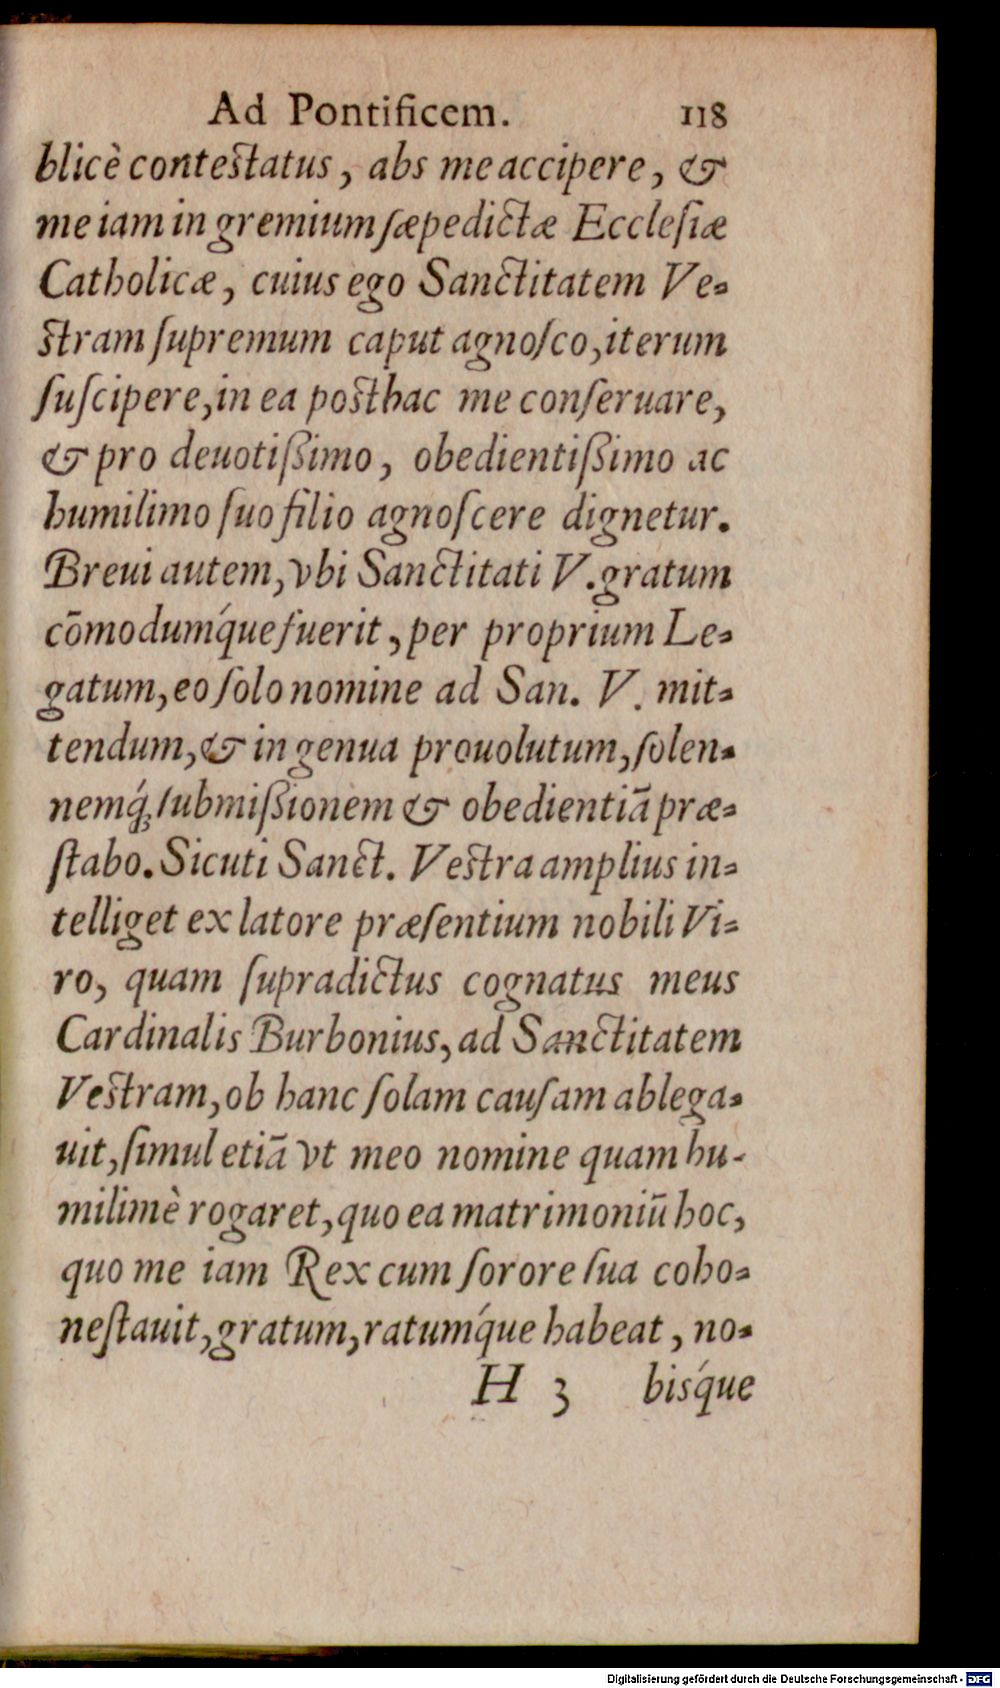 Ad Pontificem. 118
blicè contestatus, abs me accipere, &
me iam in gremium ſæpedictæ Eccleſiæ
Catholicæ, cuius ego Sanctitatem Ve-
stram ſupremum caput agnoſco, iterum
ſuſcipere, in ea posthac me conſeruare,
& pro deuotißimo, obedientißimo ac
humilimo ſuo filio agnoſcere dignetur.
Breui autem, vbi Sanctitati V. gratum
cõmodumq́ue fuerit, per proprium Le-
gatum, eo ſolo nomine ad San. V. mit-
tendum, & in genua prouolutum, ſolen-
nemq́; ſubmißionem & obedientiã præ-
ſtabo. Sicuti Sanct. Vestra amplius in-
telliget ex latore præſentium nobili Vi-
ro, quam ſupradictus cognatus meus
Cardinalis Burbonius, ad Sanctitatem
Vestram, ob hanc ſolam cauſam ablega-
uit, ſimul etiã vt meo nomine quam hu-
milimè rogaret, quo ea matrimoniũ hoc,
quo me iam Rex cum ſorore ſua coho-
neſtauit, gratum, ratumq́ue habeat, no-
H 3 bisq́ue
Digitalisierung gefördert durch die Deutsche Forschungsgemeinschaft - DFG